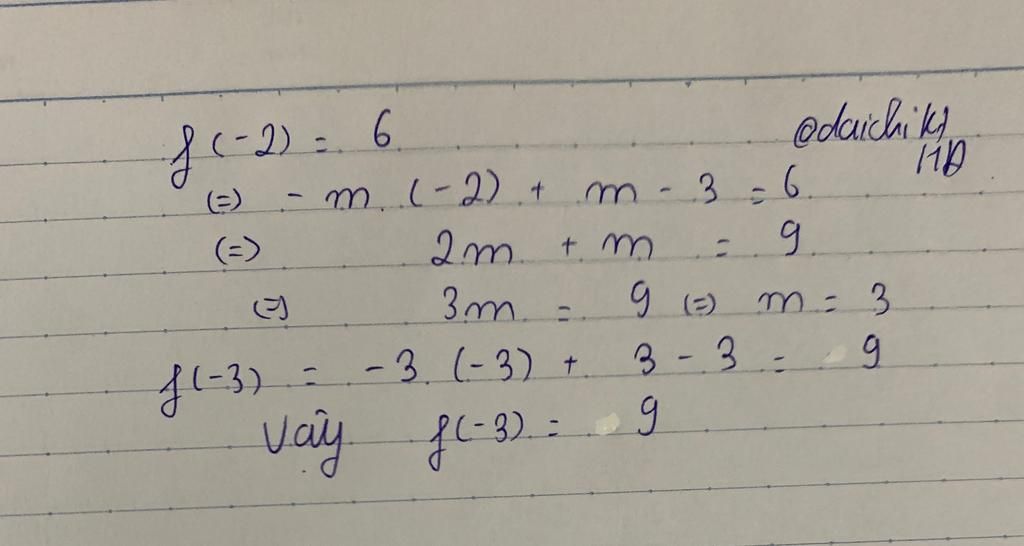 f(-2) = 6
@daichikl
HD
(=) - m. (-2) + m - 3 = 6
(=) 2m + m = 9
(=) 3m = 9 (=) m = 3
f(-3) = -3. (-3) + 3 - 3 = 9
Vây f(-3) = 9